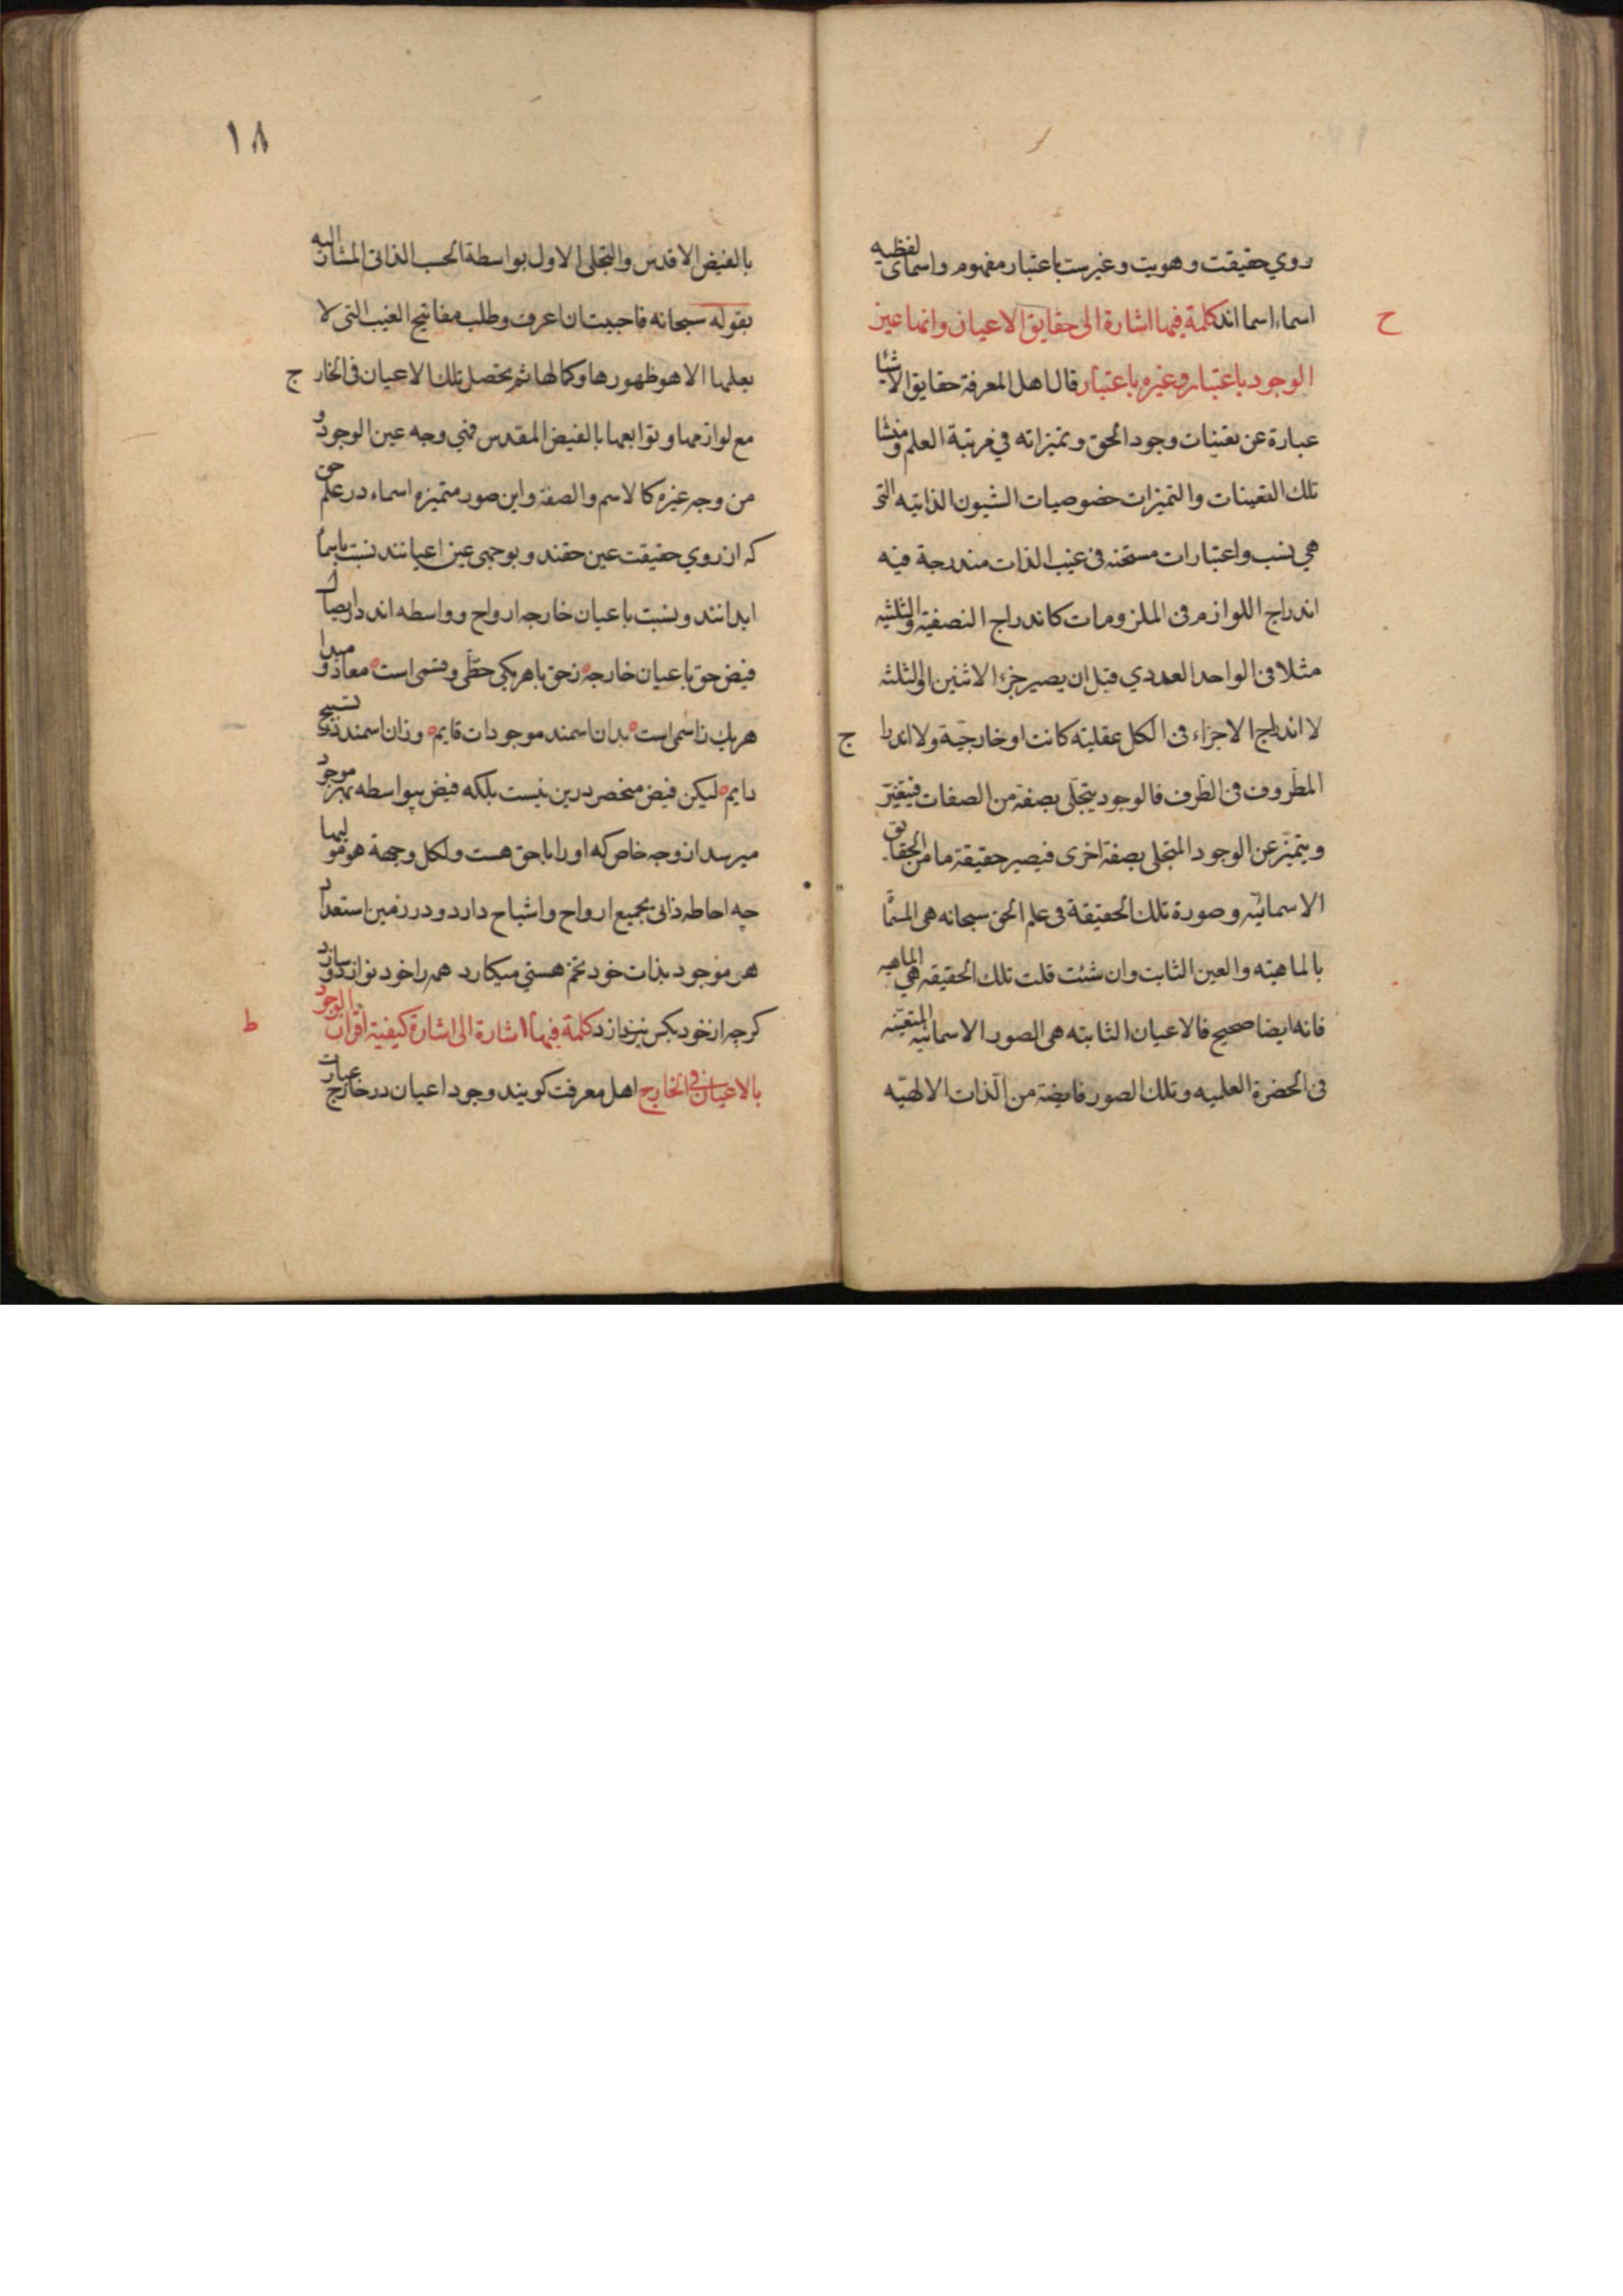 روي حقيقت وهويت وغيرست باعتبار مفهوم واسماى لفظيه
ح
اسماء اسما اند كلمة فيها اشارة الى حقايق الاعيان وانها عين
الوجود باعتبار وغيره باعتبار قال اهل المعرفة حقايق الاشيا
عبارة عن تعينات وجود الحق وتميزاته في مرتبة العلم ومنشا
تلك التعينات والتميزات خصوصيات الشيون الذاتيه التى
هي نسب واعتبارات مستجنه فى غيب الذات مندرجة فيه
اندراج اللوازم فى الملزومات كاندراج النصفية والثلثيه
مثلا فى الواحد العددي قبل ان يصير جزء الاثنين او الثلثه
لا اندراج الاجزاء فى الكل عقليته كانت او خارجيّة ولا اندرا ج
المظروف فى الظرف فالوجود يتجلى بصفة من الصفات فيتعيّن
ويتميّز عن الوجود المتجلى بصفة اخرى فيصير حقيقة ما من الحقايق
الاسمائيّه وصورة تلك الحقيقة فى علم الحق سبحانه هى المسمّا
بالماهيته والعين الثابت وان شئت قلت تلك الحقيقه هي الماهيه
فانه ايضا صحيح فالاعيان الثابته هى الصور الاسمائيه المتعيّنه
فى الحضرة العلميه وتلك الصور فايضة من الذات الالهيّه
١٨
بالفيض الاقدس والتجلى الاول بواسطة الحب الذاتى المشار اليه
بقوله سبحانه فاحببت ان اعرف وطلب مفاتيح الغيب التى لا
يعلمها الا هو ظهورها وكمالها ثم يحصل تلك الاعيان فى الخار ج
مع لوازمها وتوابعها بالفيض المقدس فهي وجه عين الوجود و
من وجه غيره كالاسم والصفة واين صور متميزه اسماء در علم حق
كه از روي حقيقت عين حقند وبوجهى عين اعيانند نسبت باسما
ابدانند ونسبت باعيان خارجه ارواح وواسطه اند در ايصال
فيض حق باعيان خارجه زحق باهر يكى حظّى وقسمى است معاد و مبدا
هريك زاسمى است بدان اسمند موجودات قايم وزان اسمند در تسبيح
دايم ليكن فيض منحصر درين نيست بلكه فيض بيواسطه بهر موجود
ميرسد از وجه خاص كه اورا باحق هست ولكل وجهة هو موليها
چه احاطه ذاتى بجميع ارواح واشباح دارد ودر زمين استعداد
هر موجود بذات خود تخم هستي ميكارد همه را خود نوازد و سازد
ط
كرچه از خود بكس نپردازد كلمة فيها اشارة الى اشارة كيفية اقران الوجود
بالاعيان في الخارج اهل معرفت كويند وجود اعيان در خارج عبارت